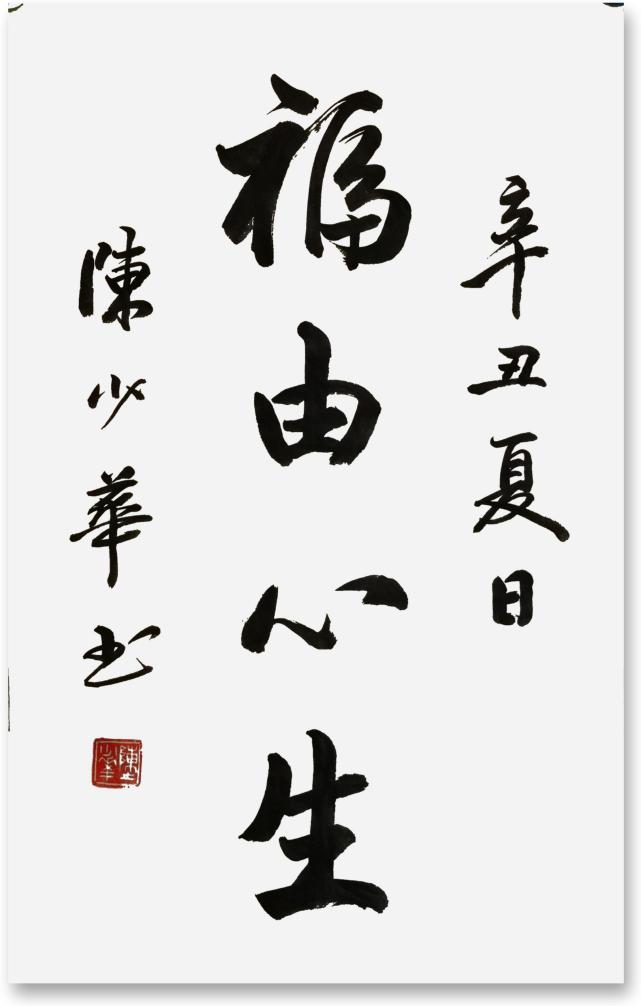 辛丑夏日
福由心生
陳少華书
陳少華